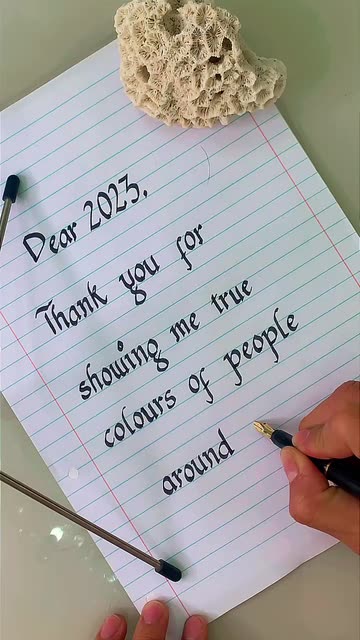 Dear 2023,
Thank you for
showing me true
colours of people
around